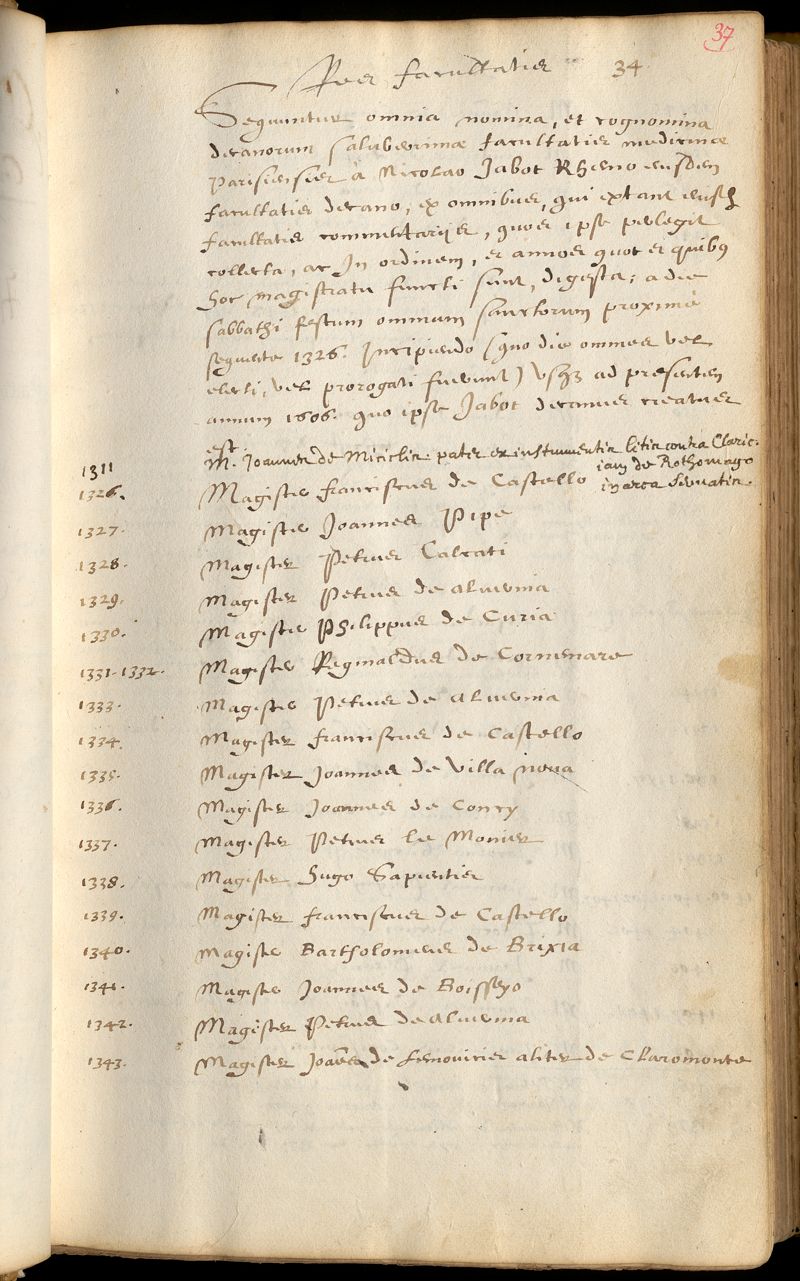 37
Res facultatis 34
Sequuntur omnia nomina, et cognomina
decanorum saluberrimæ facultatis medicinæ
Parisiensis à Nicolao Jabot Rheno eiusdem
facultatis decano, ex omnibus, qui extant eiusd
facultatis commentarijs, quos ipse perlegit
collecta, ac In ordinem, et annos quot et quibus
hoc magistratu functi sunt, digesta; a die
sabbathi festum omnium sanctorum proximè
sequente 1326. Incipiendo (quo die omnes vel
electi, vel prorogati fuerunt) Vsq3 ad presentem
annum 1606. quo ipse Jabot decanus creatus
est.
1311 M. Joannes de pater ex instrumentis litis contra Claric.
iam de Rothomago
in arca
1326. Magister franciscus de Castello
1327. Magister Joannes Pipe
1328. Magister Petrus Calcati
1329. Magister Petrus de aluernia
1330. Magister Philippus de Curia
1331-1332. Magister Reginaldus de Cormenare
1333. Magister Petrus de aluernia
1334. Magister franciscus de Castello
1335. Magister Joannes de Villa noua
1336. Magister Joannes de Concy
1337. Magister Petrus le Monier
1338. Magister Hugo Sapientis
1339. Magister franciscus de Castello
1340. Magister Bartholomeus de Brixia
1341. Magister Joannes de Boisseyo
1342. Magister Petrus de aluernia
1343. Magister Joães de aliter de Claromonte